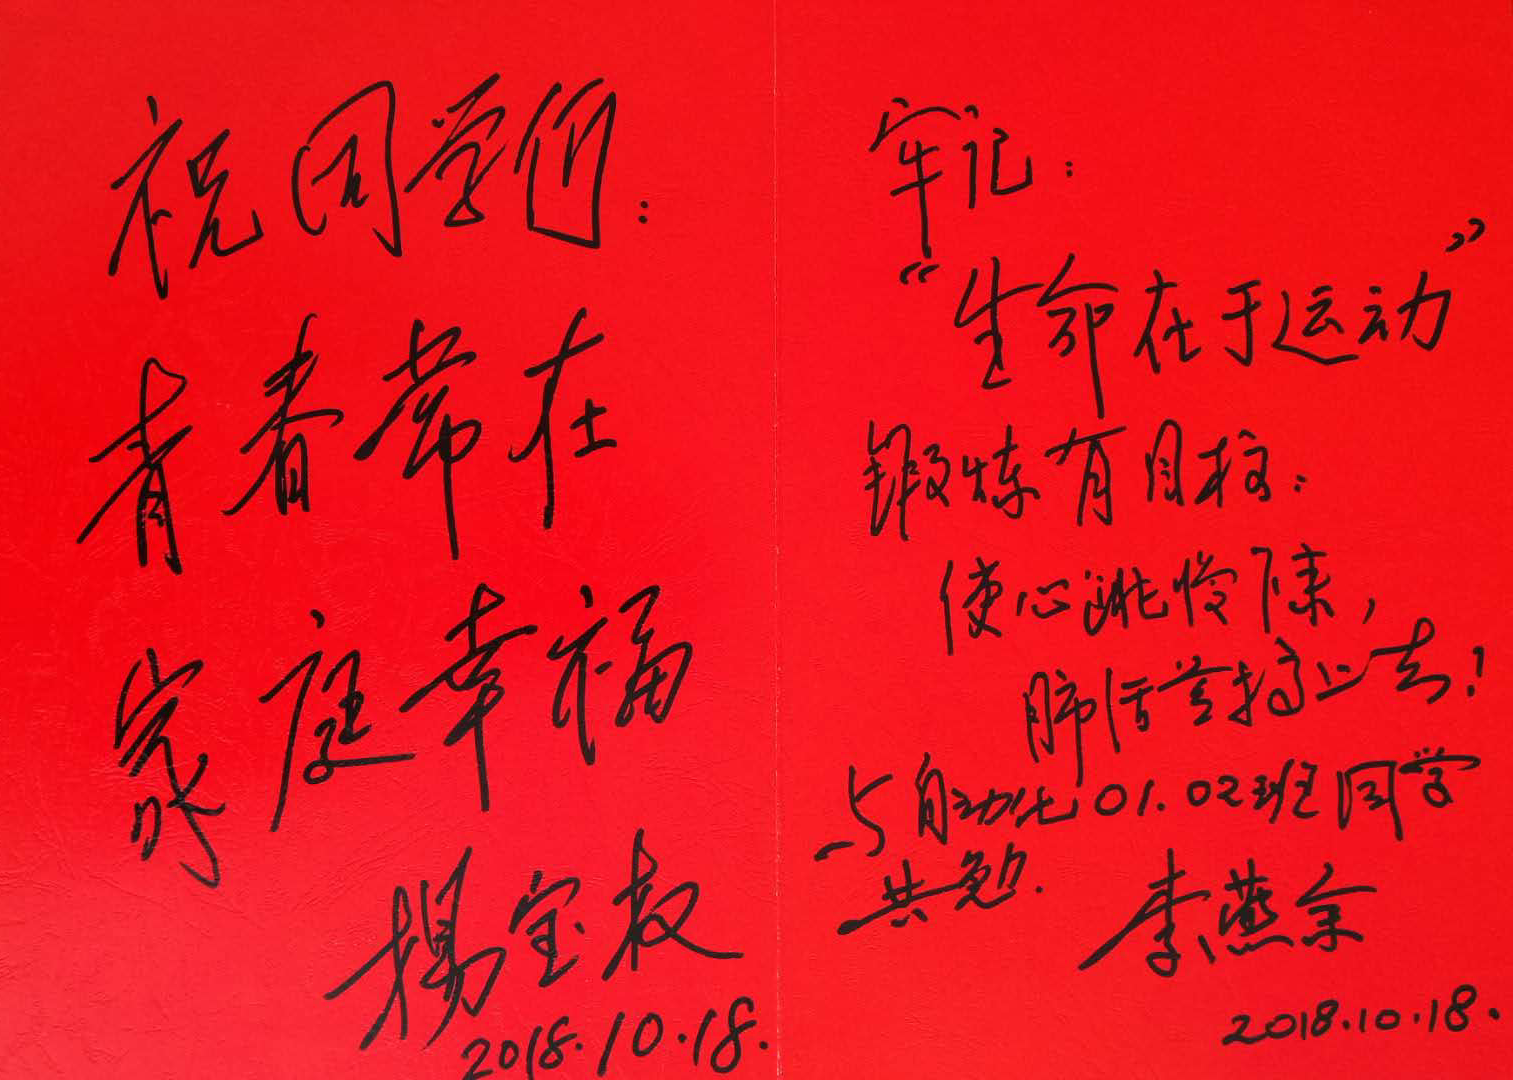 祝同学们：
青春常在
家庭幸福
楊宝权
2018.10.18.
牢记：
“生命在于运动”
锻炼有目标：
使心跳慢下来，
肺活量提高上去！
与自动化01.02班同学
共勉.
李燕
2018.10.18.